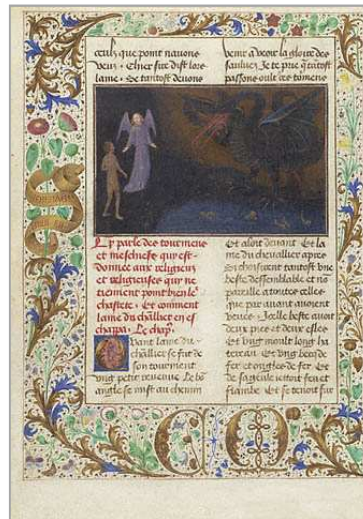 ceulx que point nauons
veuz. Chier sire dist lors
lame. Se tantost deuons
venir a veoir la gloire des
sauluez Je te prie que tantost
passons oultre ces tormens
Cy parle des tourmens
et meschiefz qui est
donnee aux religieux
et religieuses qui ne
tiennent point bien le
chastete. Et comment
lame du chlīer en es
chappa. Le chap.
Quant lame du
chlīer se fut de
son tourment
vng petit reuenue Le bō
angle se mist au chemin
Et aloit deuant Et la
me du cheuallier apres
Si choisirent tantost vne
beste dessemblable et nō
pareille a toutes celles
que par auant auoient
veues. Icelle beste auoit
deux piez et deux esles
Et vng moult long ha
terean Et vng becq de
fer et ongles de fer Et
de sa gueule issoit feu et
flambe Et se tenoit sur